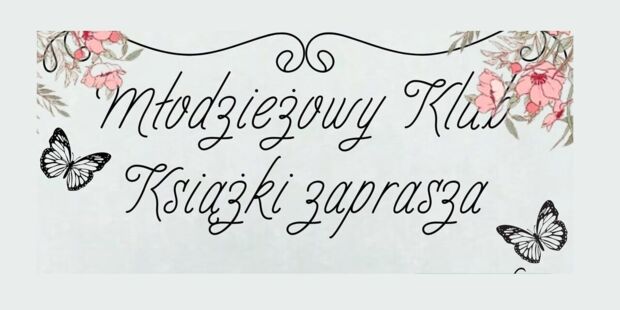 Młodzieżowy Klub
Książki zaprasza